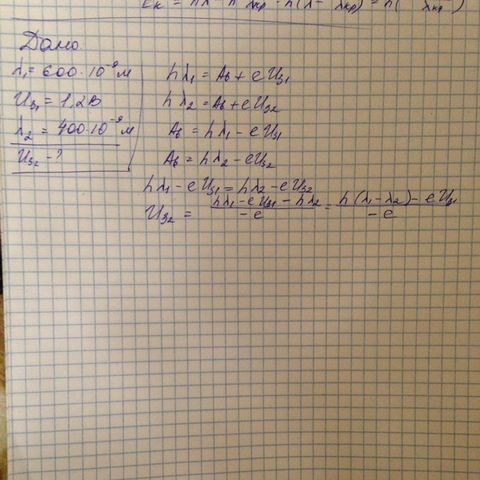 Eк = hλ - h λкр = h(λ - λкр) = h( λкр )
Дано
λ₁ = 600·10⁻⁹ м
Uз₁ = 1,2 В
λ₂ = 400·10⁻⁹ м
Uз₂ - ?
hλ₁ = Aв + eUз₁
hλ₂ = Aв + eUз₂
Aв = hλ₁ - eUз₁
Aв = hλ₂ - eUз₂
hλ₁ - eUз₁ = hλ₂ - eUз₂
Uз₂ = (hλ₁ - eUз₁ - hλ₂)/(-e) = (h(λ₁ - λ₂) - eUз₁)/(-e)